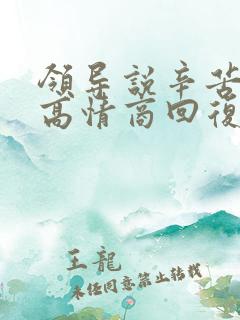 領导説辛苦
高情商回復
王龍
未经同意禁止转载